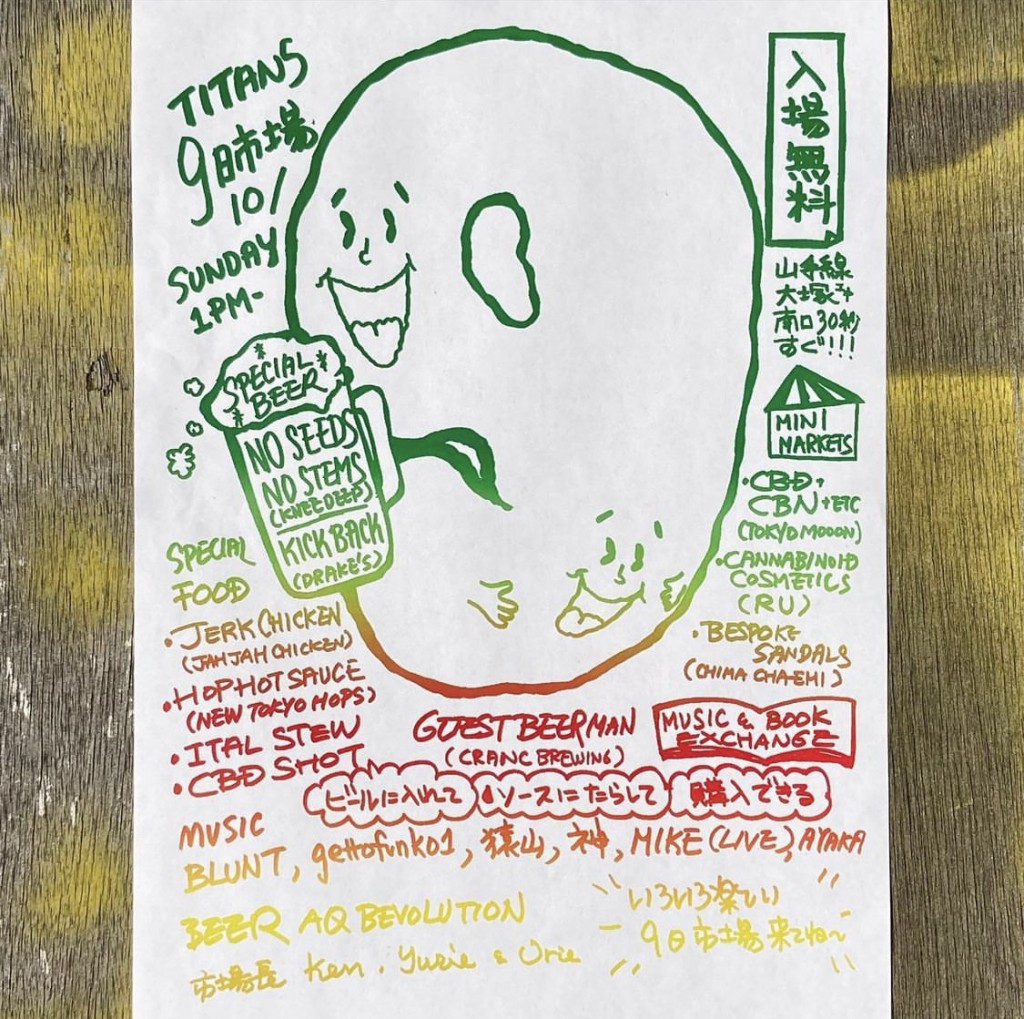 TITANS
9日市場
10/
SUNDAY
1PM-
入場無料
山手線
大塚
南口30秒
すぐ!!!
SPECIAL
BEER
NO SEEDS
NO STEMS
(KNEEDEEP)
KICK BACK
(DRAKE'S)
MINI
MARKETS
・CBD,
CBN+ETC
(TOKYO MOOON)
・CANNABINOID
COSMETICS
(RU)
・BESPOKE
SANDALS
(CHIMA CHAEMI)
SPECIAL
FOOD
・JERK CHICKEN
(JAH JAH CHICKEN)
・HOP HOT SAUCE
(NEW TOKYO HOPS)
・ITAL STEW
・CBD SHOT
GUEST BEERMAN
(CRANC BREWING)
MUSIC & BOOK
EXCHANGE
ビールに入れて ソースにたらして 購入できる
MUSIC
BLUNT, gettofunk01, 猿山, 神, MIKE (LIVE), AYAKA
BEER AQ BEVOLUTION
市場長 Ken, Yurie & Orie
いろいろ楽しい
9日市場来てね〜